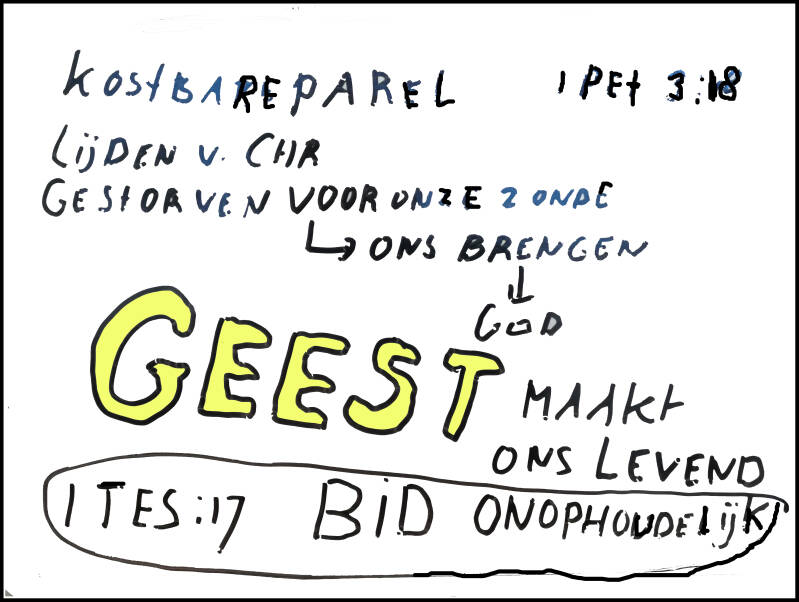 KOSTBAREPAREL 1 PET 3:18
LIJDEN V. CHR
GESTORVEN VOOR ONZE ZONDE
ONS BRENGEN
GOD
GEEST MAAKT
ONS LEVEND
1 TES:17 BID ONOPHOUDELIJK!